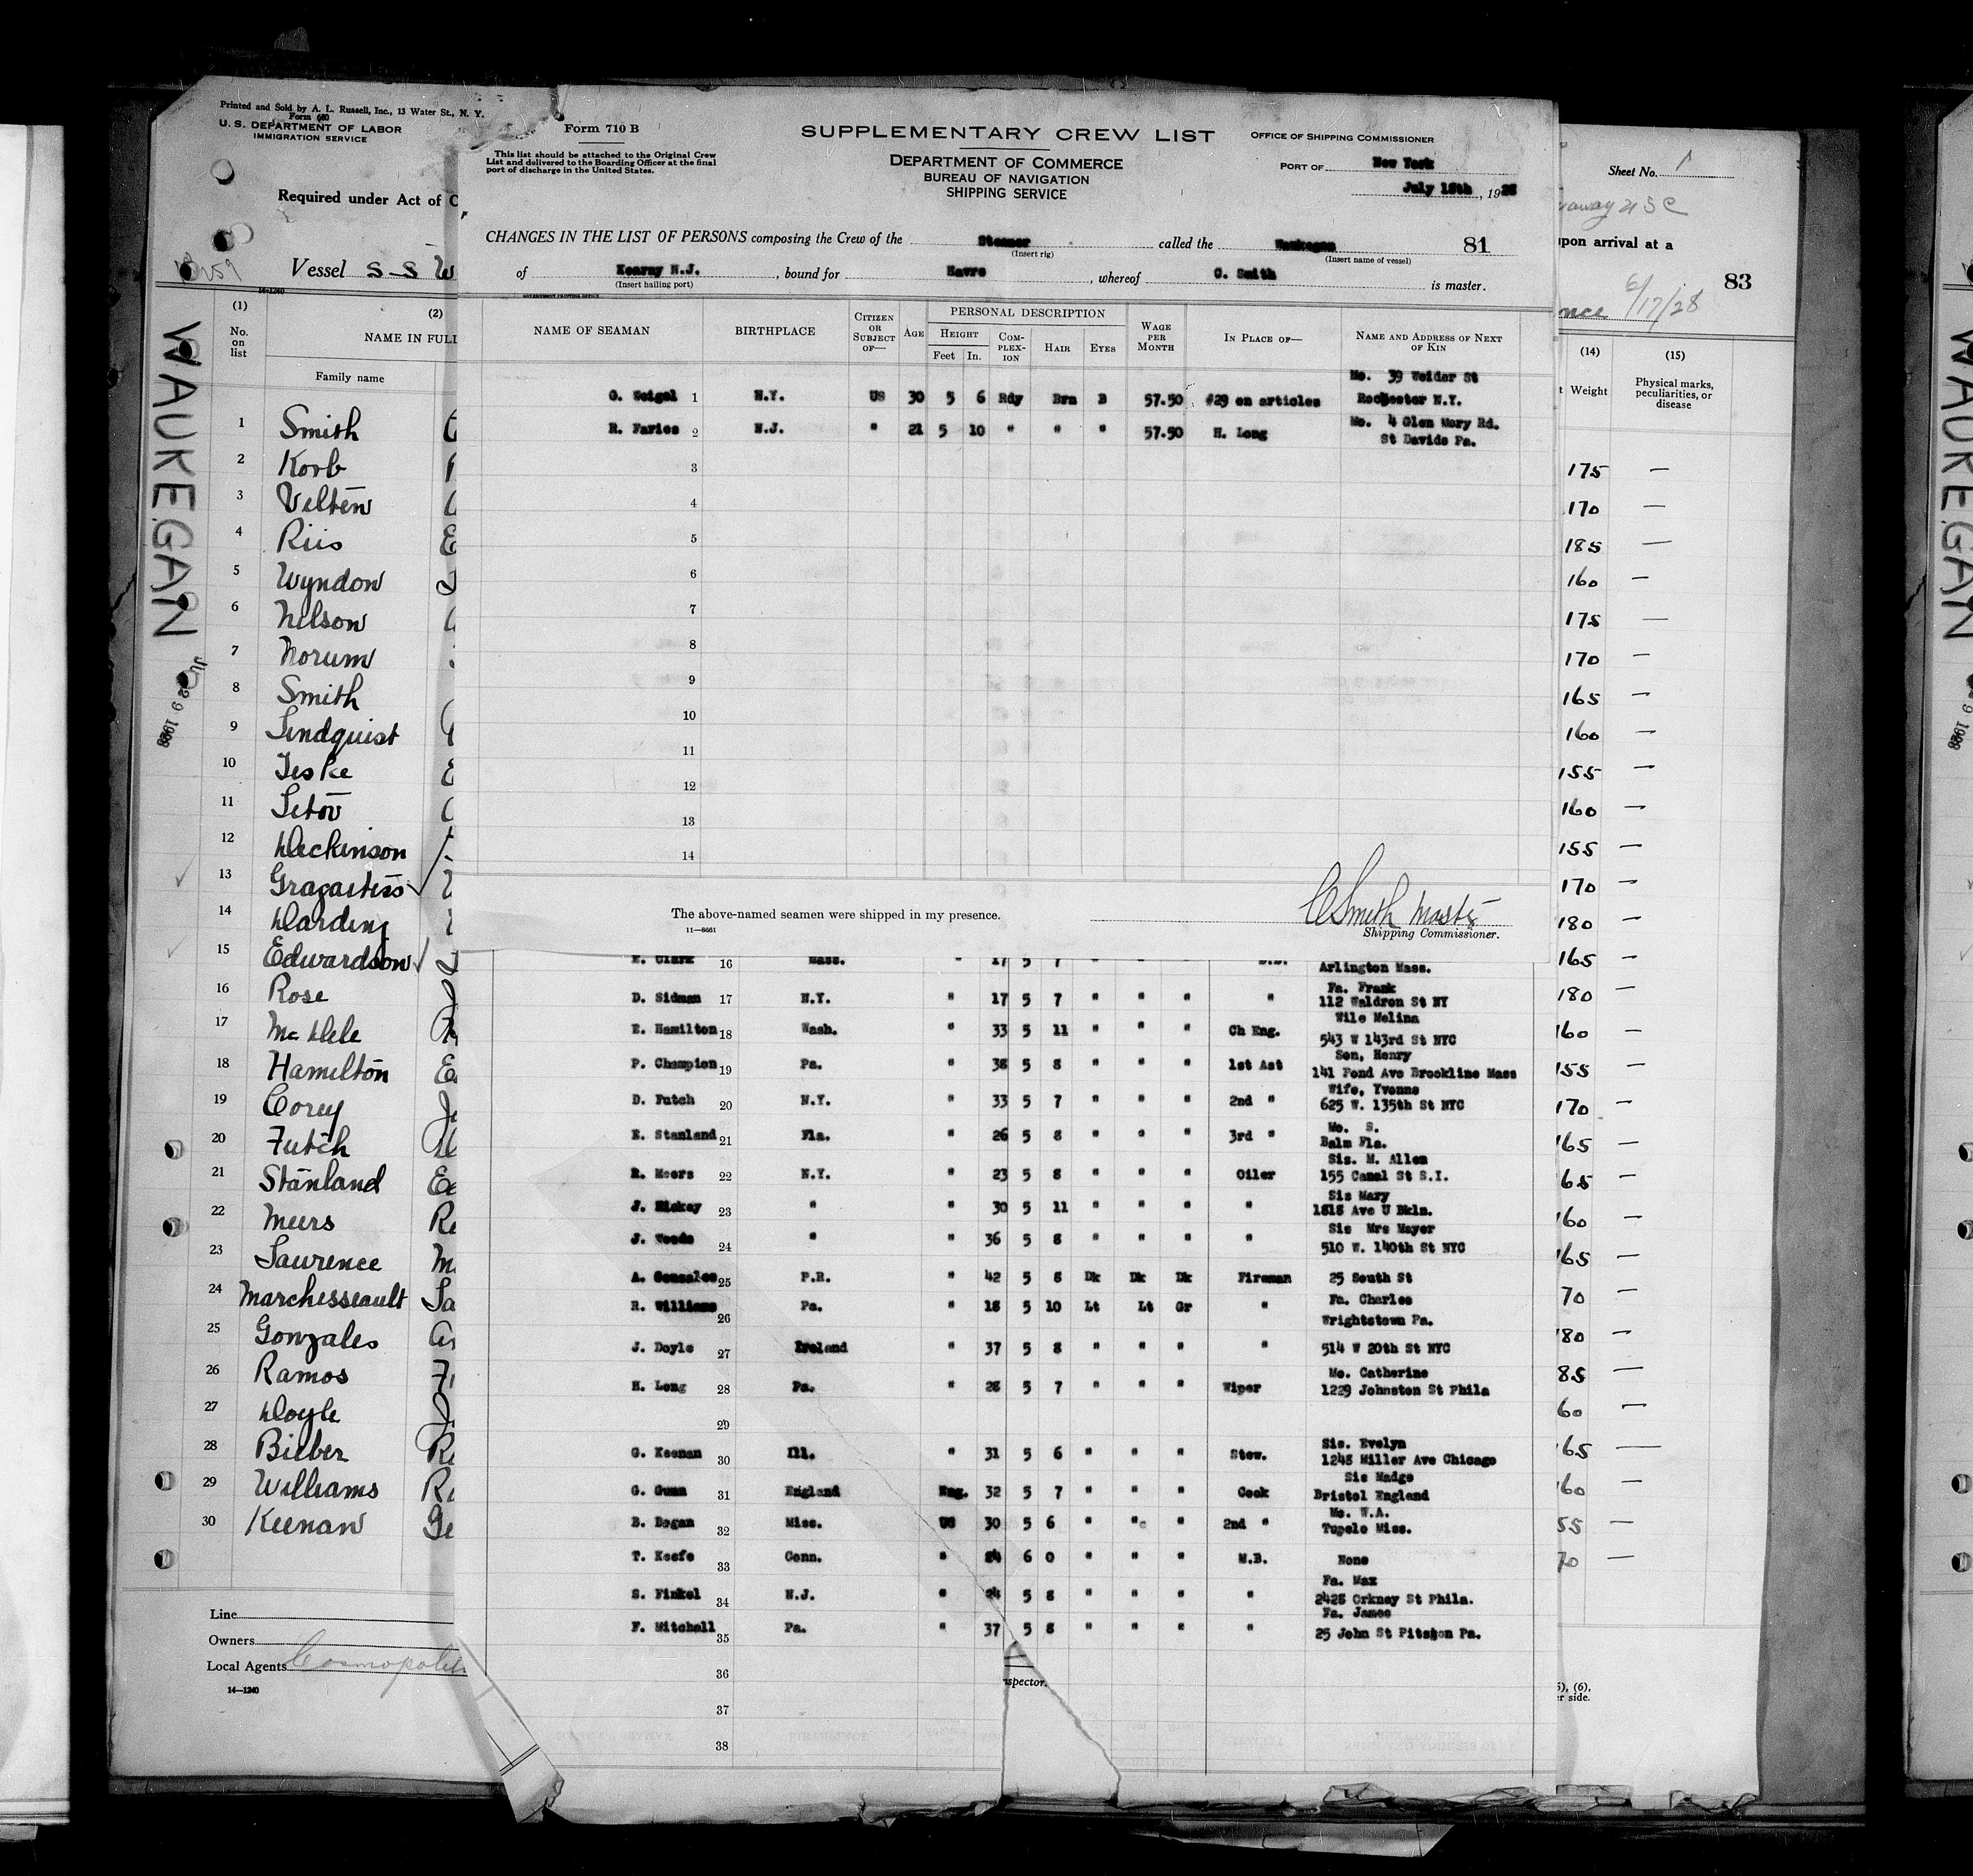 Printed and Sold by A. L. Russell, Inc., 13 Water St., N. Y.
Form 680
U. S. DEPARTMENT OF LABOR
IMMIGRATION SERVICE
Required under Act of C
Vessel S-S W
(1) (2)
No. on list NAME IN FULL
Family name
1 Smith
2 Korb
3 Velten
4 Riis
5 Wyndon
6 Nilson
7 Norum
8 Smith
9 Lindquist
10 Jeske
11 Letov
12 Dickinson
13
14 Harding
15 Edwardson
16 Rose
17
18 Hamilton
19 Corey
20 Futch
21 Stanland
22 Meers
23 Laurence
24 Marchesseault
25 Gonzales
26 Ramos
27 Doyle
28 Bieber
29 Williams
30 Keenan
Line
Owners
Local Agents
14—1240
WAUKEGAN
Form 710 B
This list should be attached to the Original Crew
List and delivered to the Boarding Officer at the final
port of discharge in the United States.
SUPPLEMENTARY CREW LIST
DEPARTMENT OF COMMERCE
BUREAU OF NAVIGATION
SHIPPING SERVICE
OFFICE OF SHIPPING COMMISSIONER
PORT OF New York
July 18th, 1928
CHANGES IN THE LIST OF PERSONS composing the Crew of the Steamer called the Waukegan 81
(Insert rig) (Insert name of vessel)
of Kearny N.J., bound for Havre, whereof C. Smith is master.
(Insert hailing port)
GOVERNMENT PRINTING OFFICE
NAME OF SEAMAN BIRTHPLACE CITIZEN OR SUBJECT OF— AGE PERSONAL DESCRIPTION WAGE PER MONTH IN PLACE OF— NAME AND ADDRESS OF NEXT OF KIN
HEIGHT COM-PLEX-ION HAIR EYES
Feet In.
Mo. 39 Weider St
G. Weigel 1 N.Y. US 30 5 6 Rdy Brn B 57.50 #29 on articles Rochester N.Y.
R. Faries 2 N.J. " 21 5 10 " " " 57.50 H. Long Mo. 4 Glen Mary Rd.
St Davids Pa.
3
4
5
6
7
8
9
10
11
12
13
14
CSmith Master
The above-named seamen were shipped in my presence.
11—8661
Shipping Commissioner.
E. Clark 16 Mass. " 17 5 7 " " " Arlington Mass.
Fa. Frank
D. Sidman 17 N.Y. " 17 5 7 " " " " 112 Waldron St NY
Wife Melina
E. Hamilton 18 Wash. " 33 5 11 " " " Ch Eng. 543 W 143rd St NYC
Son, Henry
P. Champion 19 Pa. " 38 5 8 " " " 1st Ast 141 Pond Ave Brookline Mass
Wife, Yvonne
D. Futch 20 N.Y. " 33 5 7 " " " 2nd " 625 W. 135th St NYC
Mo. S.
E. Stanland 21 Fla. " 26 5 8 " " " 3rd " Balm Fla.
Sis. M. Allen
R. Meers 22 N.Y. " 23 5 8 " " " Oiler 155 Canal St S.I.
Sis Mary
J. Hickey 23 " " 30 5 11 " " " " 1818 Ave U Bkln.
Sis Mrs Mayer
J. Woods 24 " " 36 5 8 " " " " 510 W. 140th St NYC
A. Gonzales 25 P.R. " 42 5 8 Dk Dk Dk Fireman 25 South St
Fa. Charles
R. Williams 26 Pa. " 18 5 10 Lt Lt Gr " Wrightstown Pa.
J. Doyle 27 Ireland " 37 5 8 " " " " 514 W 20th St NYC
Mo. Catherine
H. Long 28 Pa. " 28 5 7 " " " Wiper 1229 Johnston St Phila
29
Sis. Evelyn
G. Keenan 30 Ill. " 31 5 6 " " " Stew. 1245 Miller Ave Chicago
Sis Madge
G. Gunn 31 England Eng. 32 5 7 " " " Cook Bristol England
Mo. W.A.
B. Dogan 32 Miss. US 30 5 6 " " " 2nd " Tupelo Miss.
T. Keefe 33 Conn. " 24 6 0 " " " M.B. None
Fa. Max
S. Finkel 34 N.J. " 24 5 8 " " " " 2428 Orkney St Phila.
Fa. James
F. Mitchell 35 Pa. " 37 5 8 " " " " 25 John St Pitston Pa.
36
37
38
spector.
Sheet No. 1
upon arrival at a
83
nce 6/17/28
(14) (15)
t Weight Physical marks, peculiarities, or disease
175 —
170 —
185 —
160 —
175 —
170 —
165 —
160 —
155 —
160 —
155 —
170 —
180 —
165 —
180 —
160 —
155 —
170 —
165 —
65 —
160 —
165 —
70 —
80 —
85 —
60 —
65 —
60 —
55 —
70 —
5), (6),
er side.
WAUKEGAN